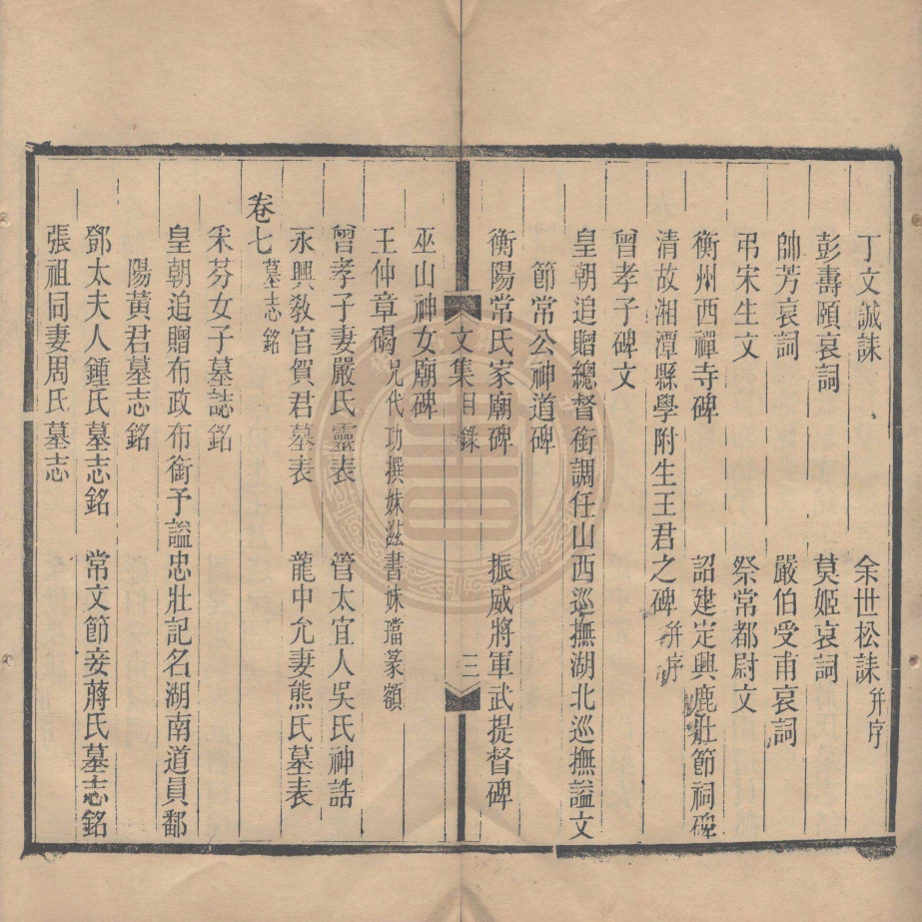 丁文誠誄　余世松誄并序
彭壽頤哀詞　莫姬哀詞
帥芳哀詞　嚴伯受甫哀詞
弔宋生文　祭常都尉文
衡州西禪寺碑　詔建定興鹿壯節祠碑
清故湘潭縣學附生王君之碑并序
曾孝子碑文
皇朝追贈總督銜調任山西巡撫湖北巡撫謚文
節常公神道碑
衡陽常氏家廟碑　振威將軍武提督碑
文集目錄　三
巫山神女廟碑
王仲章碣兄代功撰妹滋書妹璫篆額
曾孝子妻嚴氏靈表　管太宜人吳氏神誥
永興教官賀君墓表　龍中允妻熊氏墓表
卷七墓志銘
采芬女子墓誌銘
皇朝追贈布政布銜予謚忠壯記名湖南道員鄱
陽黃君墓志銘
鄧太夫人鍾氏墓志銘　常文節妾蔣氏墓志銘
張祖同妻周氏墓志